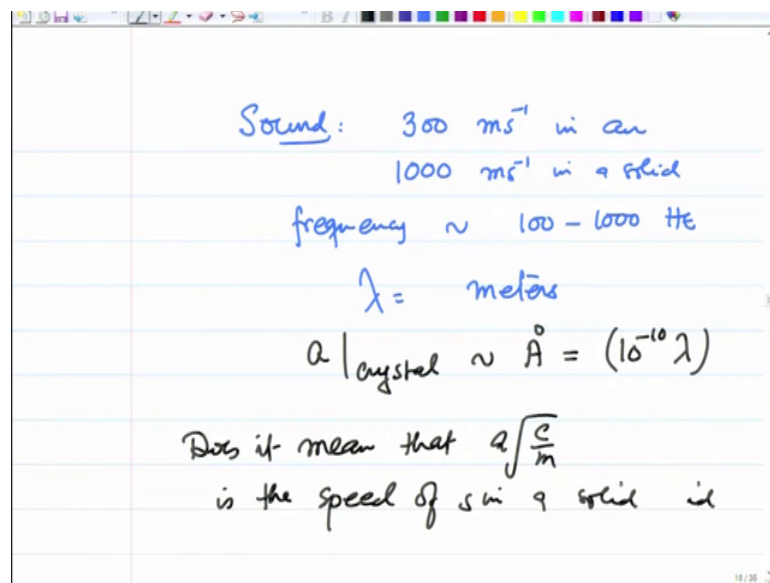 Sound: 300 ms⁻¹ in air
1000 ms⁻¹ in a solid
frequency ~ 100 – 1000 Hz
λ = meters
a|crystal ~ Å = (10⁻¹⁰ λ)
Does it mean that a√(c/m)
is the speed of s in a solid id
18/36